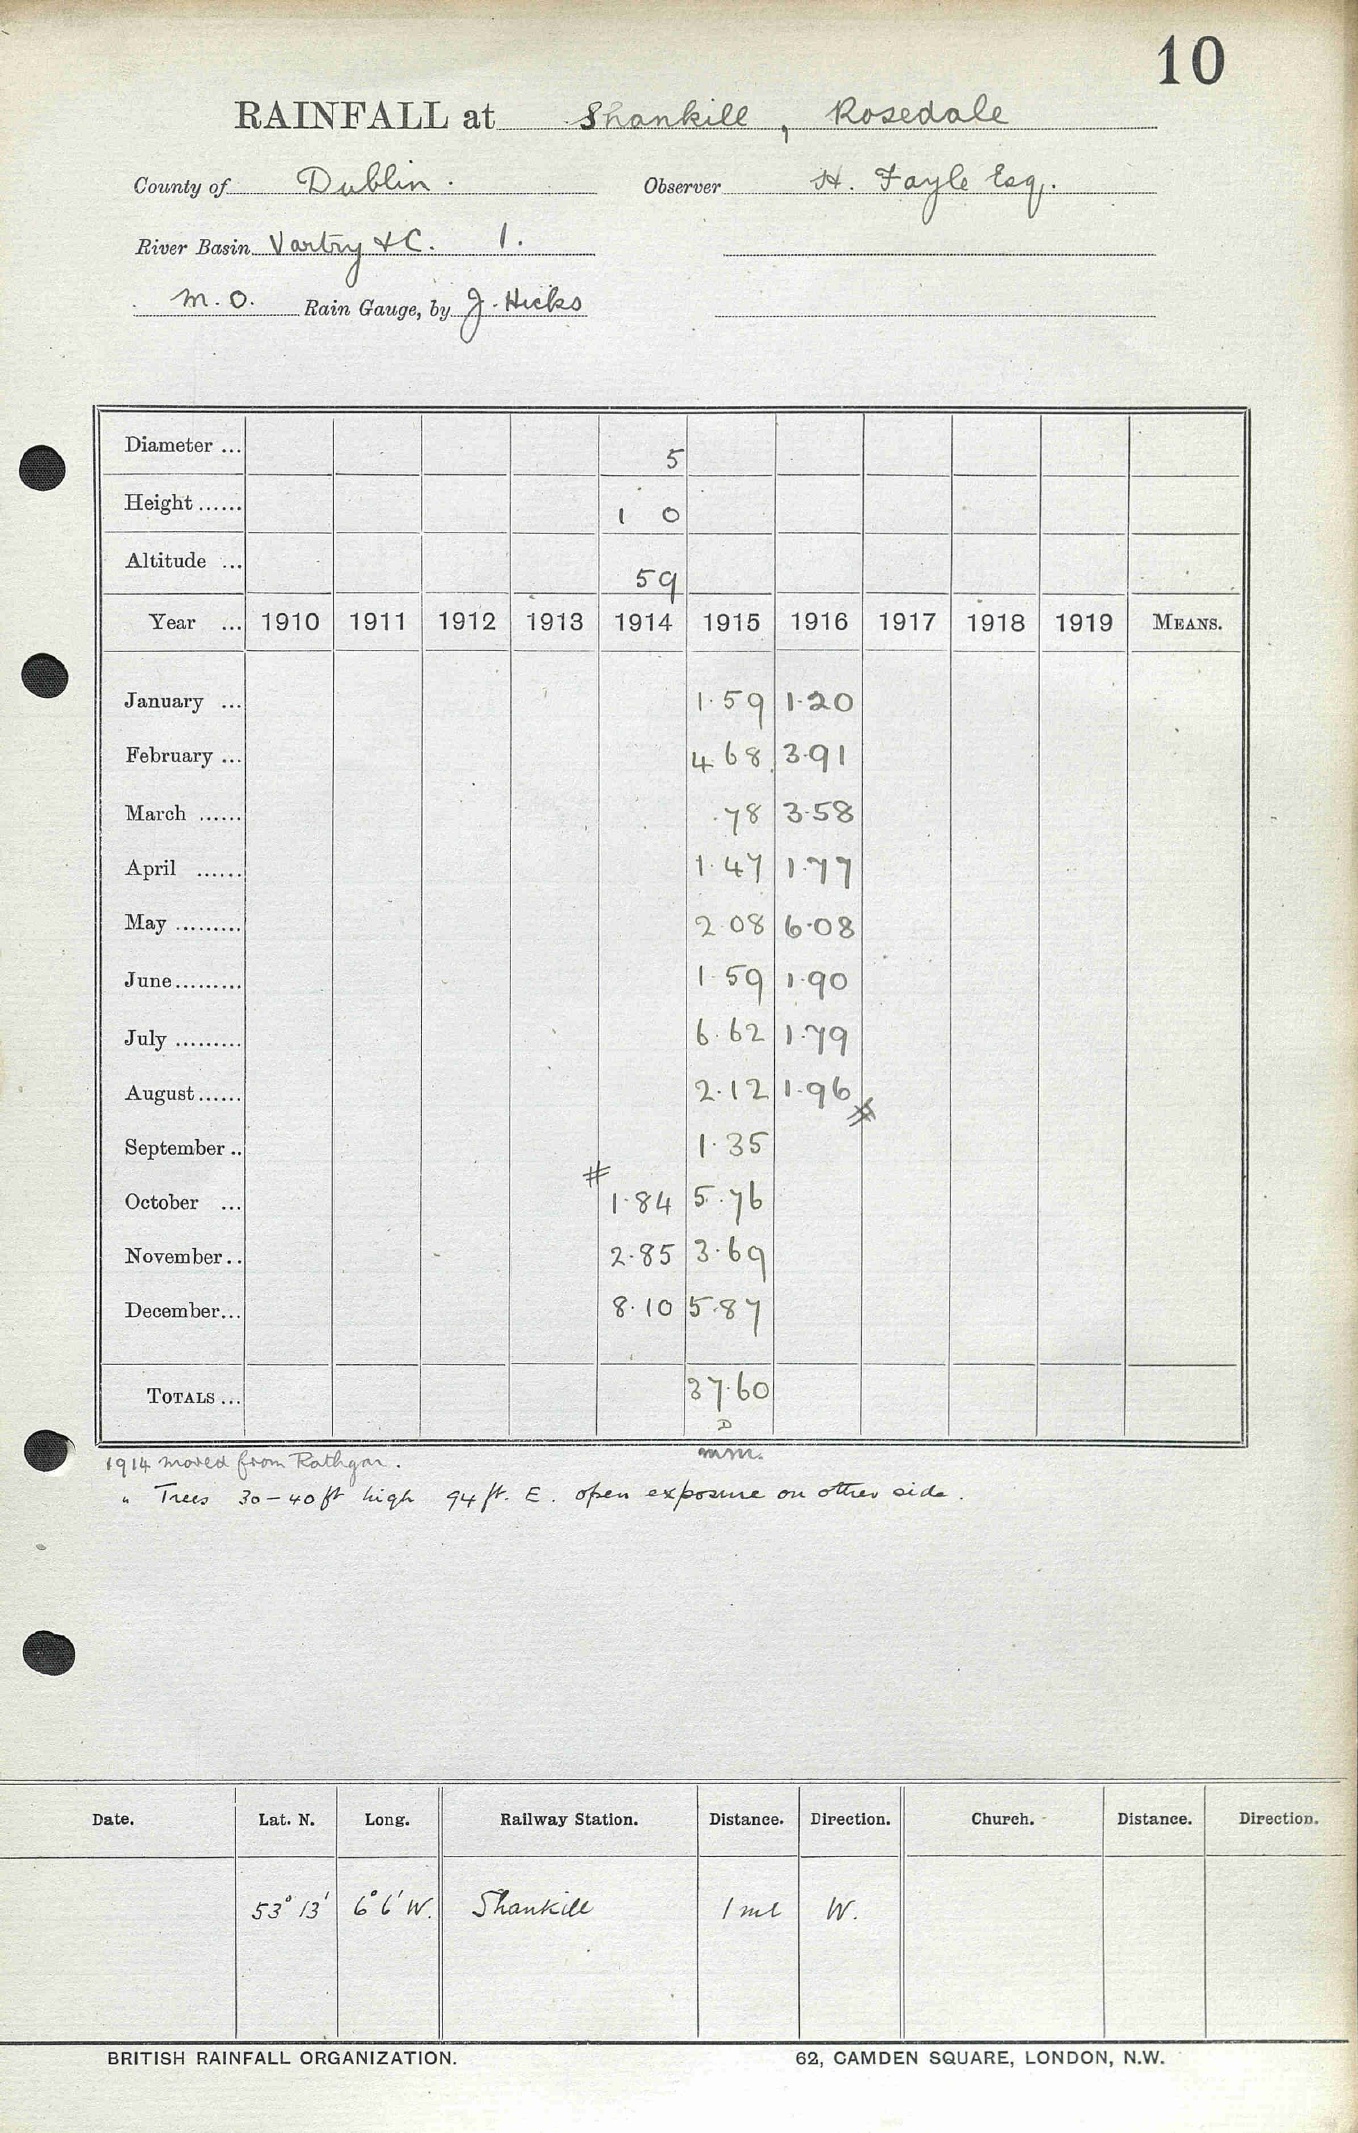 10
RAINFALL at Shankill, Rosedale
County of Dublin. Observer H. Fayle Esq.
River Basin Vartry &C. 1.
M.O. Rain Gauge, by J. Hicks
Diameter ... 5
Height...... 1 0
Altitude ... 59
Year ... 1910 1911 1912 1913 1914 1915 1916 1917 1918 1919 MEANS.
January ... 1.59 1.20
February ... 4.68 3.91
March ...... .78 3.58
April ...... 1.47 1.77
May ......... 2.08 6.08
June......... 1.59 1.90
July ......... 6.62 1.79
August...... 2.12 1.96
September .. 1.35
October ... # 1.84 5.76
November.. 2.85 3.69
December... 8.10 5.87
TOTALS ... 37.60
D
mm.
1914 moved from Rathgar.
" Trees 30-40ft high 94ft. E. open exposure on other side.
Date. Lat. N. Long. Railway Station. Distance. Direction. Church. Distance. Direction.
53° 13' 6° 6' W. Shankill 1 ml W.
BRITISH RAINFALL ORGANIZATION. 62, CAMDEN SQUARE, LONDON, N.W.